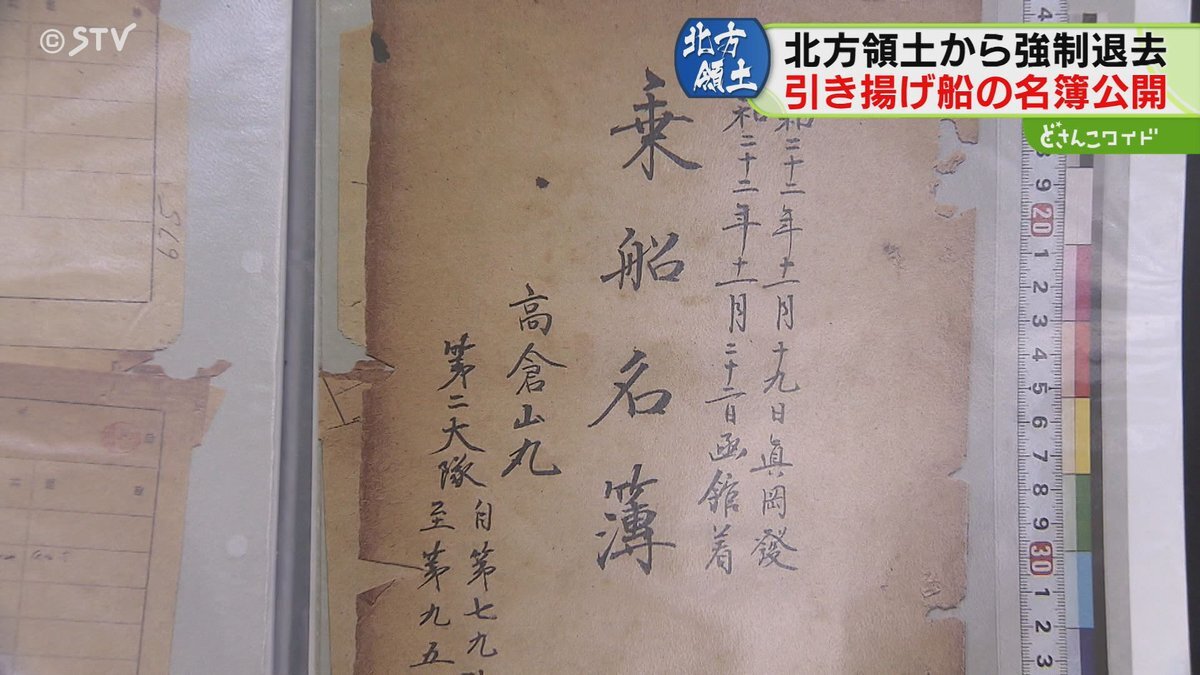 ©STV
北方領土
北方領土から強制退去
引き揚げ船の名簿公開
どさんこワイド
和二十二年十一月十九日眞岡發
和二十二年十一月二十二日函館着
乗船名簿
高倉山丸
第二大隊
自第七九
至第九五
675
9
20
1
2
3
4
5
6
7
8
9
30
1
2
3